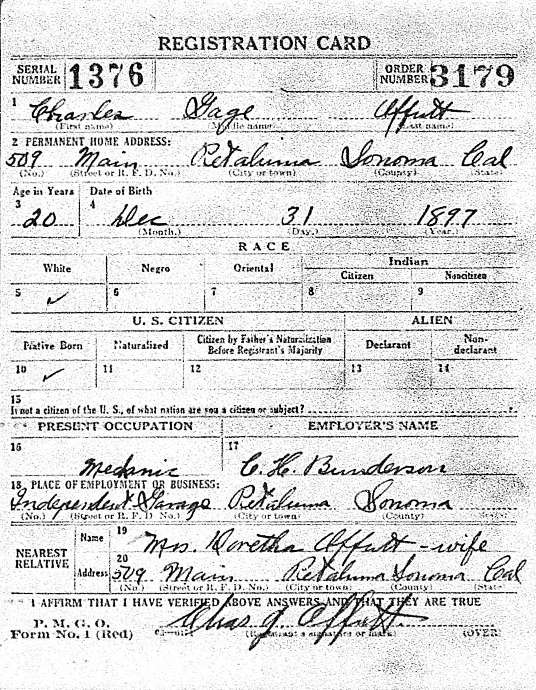 REGISTRATION CARD
SERIAL NUMBER 1376 ORDER NUMBER 3179
1 Charles Gage Offutt
(First name) (Middle name) (Last name)
2 PERMANENT HOME ADDRESS:
509 Main Petaluma Sonoma Cal
(No.) (Street or R. F. D. No.) (City or town) (County) (State)
Age in Years Date of Birth
3 4
20 Dec 31 1897
(Month.) (Day.) (Year.)
RACE
White Negro Oriental Indian
Citizen Noncitizen
5 ✓ 6 7 8 9
U. S. CITIZEN ALIEN
Native Born Naturalized Citizen by Father's Naturalization Before Registrant's Majority Declarant Non-declarant
10 ✓ 11 12 13 14
15
If not a citizen of the U. S., of what nation are you a citizen or subject?
PRESENT OCCUPATION EMPLOYER'S NAME
16 Mechanic 17 C. H. Bunderson
18 PLACE OF EMPLOYMENT OR BUSINESS:
Independent Garage Petaluma Sonoma
(No.) (Street or R. F. D. No.) (City or town) (County)
NEAREST RELATIVE Name 19 Mrs. Doretha Offutt - wife
Address 20 509 Main Petaluma Sonoma Cal
(No.) (Street or R. F. D. No.) (City or town) (County) (State)
I AFFIRM THAT I HAVE VERIFIED ABOVE ANSWERS AND THAT THEY ARE TRUE
P. M. G. O.
Form No. 1 (Red) Chas G. Offutt
(Registrant's signature or mark) (OVER)